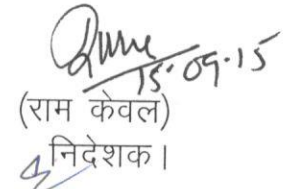 15.09.15
(राम केवल)
निदेशक।